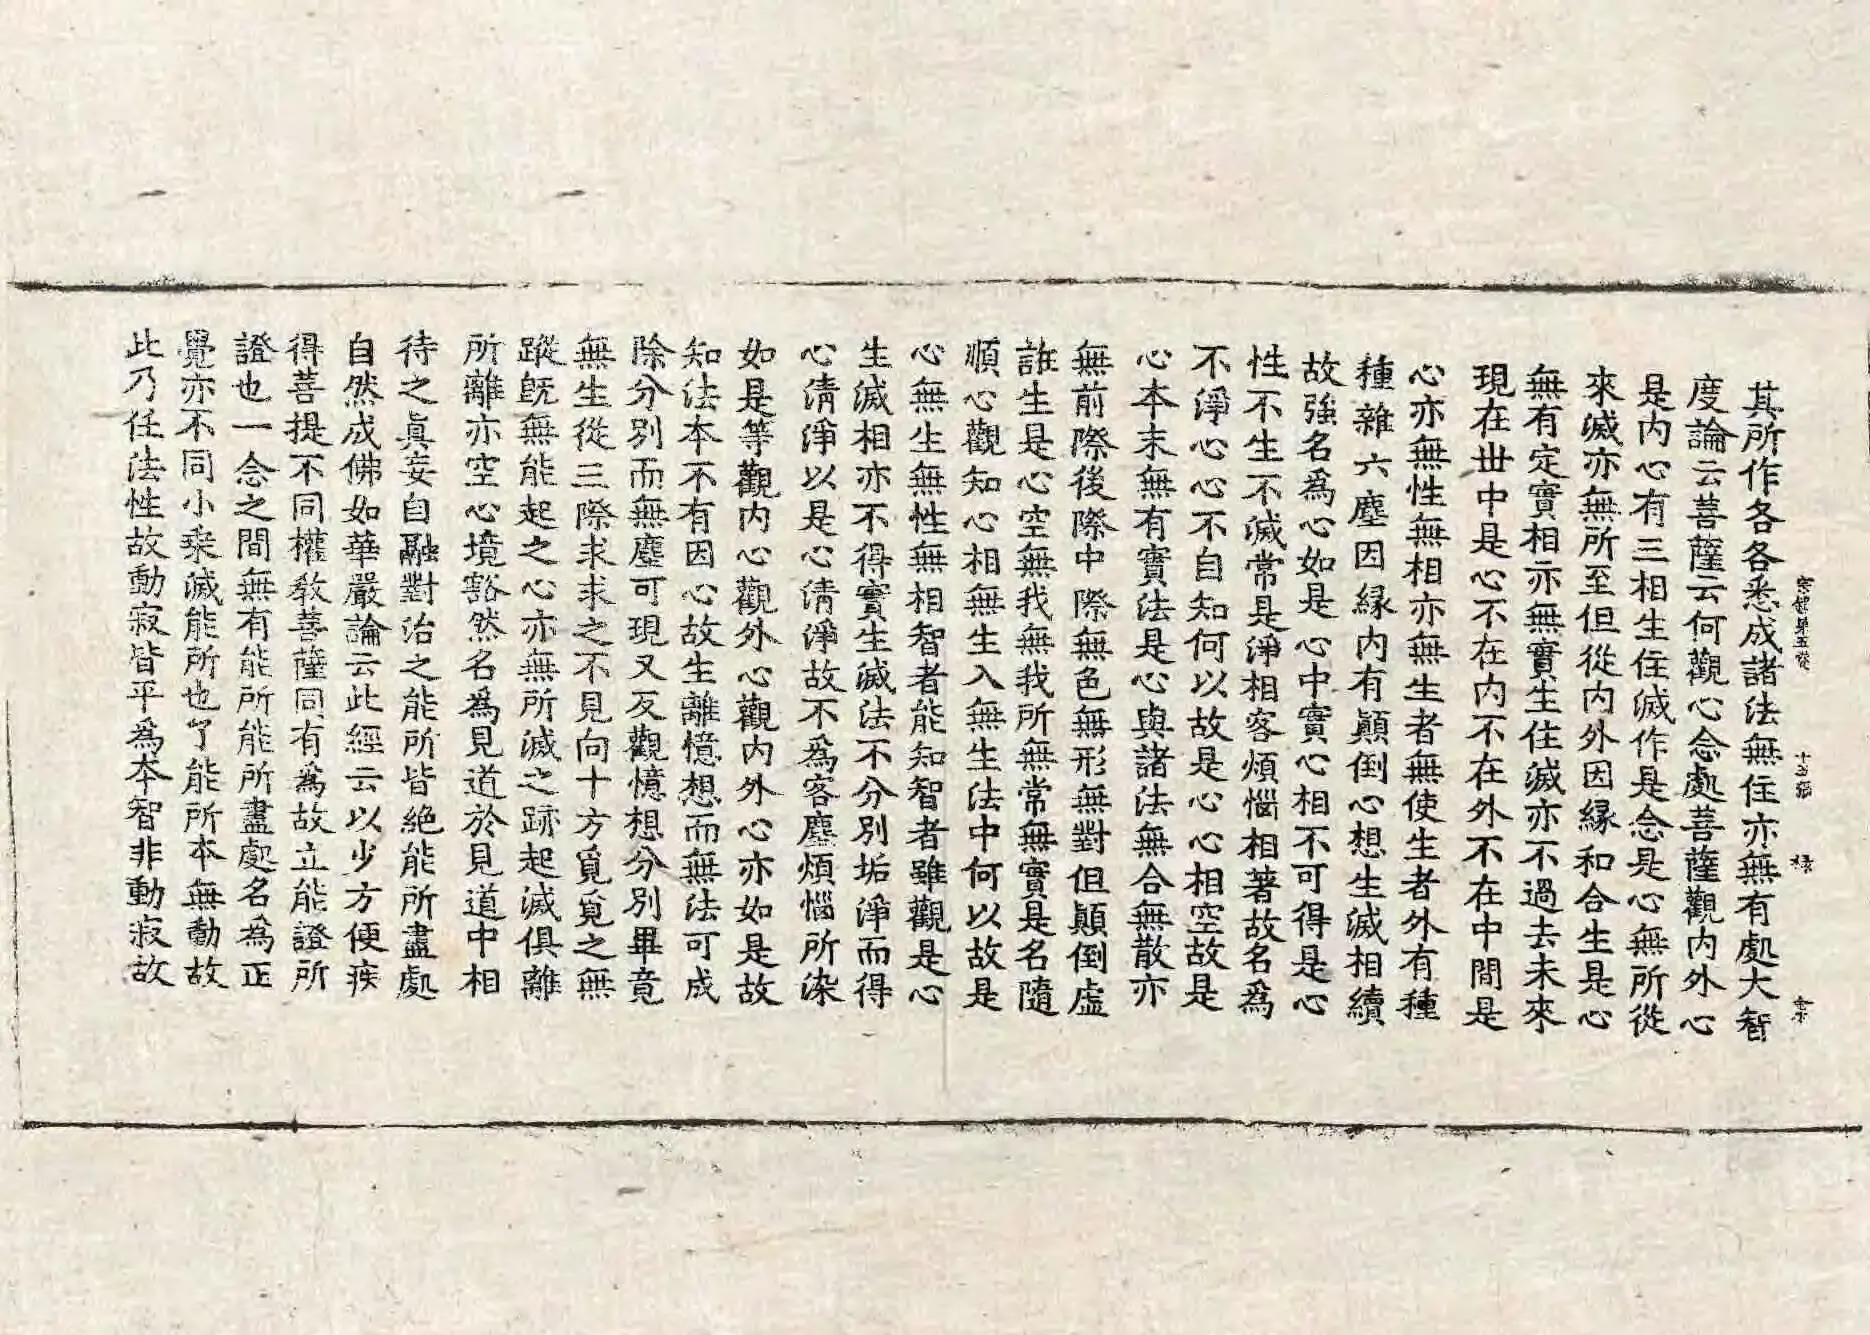 宗鏡第五卷 十五張 禄
其所作各各悉成諸法無住亦無有處大智
度論云菩薩云何觀心念處菩薩觀内外心
是内心有三相生住滅作是念是心無所從
來滅亦無所至但從内外因縁和合生是心
無有定實相亦無實生住滅亦不過去未來
現在丗中是心不在内不在外不在中間是
心亦無性無相亦無生者無使生者外有種
種雜六塵因縁内有顚倒心想生滅相續
故強名爲心如是心中實心相不可得是心
性不生不滅常是淨相客煩惱相著故名爲
不淨心心不自知何以故是心心相空故是
心本末無有實法是心與諸法無合無散亦
無前際後際中際無色無形無對但顚倒虛
誰生是心空無我無我所無常無實是名隨
順心觀知心相無生入無生法中何以故是
心無生無性無相智者能知智者雖觀是心
生滅相亦不得實生滅法不分別垢淨而得
心清淨以是心清淨故不爲客塵煩惱所染
如是等觀内心觀外心觀内外心亦如是故
知法本不有因心故生離憶想而無法可成
除分別而無塵可現又反觀憶想分別畢竟
無生從三際求求之不見向十方覓覓之無
蹤旣無能起之心亦無所滅之跡起滅俱離
所離亦空心境豁然名爲見道於見道中相
待之眞妄自融對治之能所皆絶能所盡處
自然成佛如華嚴論云此經云以少方便疾
得菩提不同權敎菩薩同有爲故立能證所
證也一念之間無有能所能所盡處名爲正
覺亦不同小乘滅能所也了能所本無動故
此乃任法性故動寂皆平爲本智非動寂故